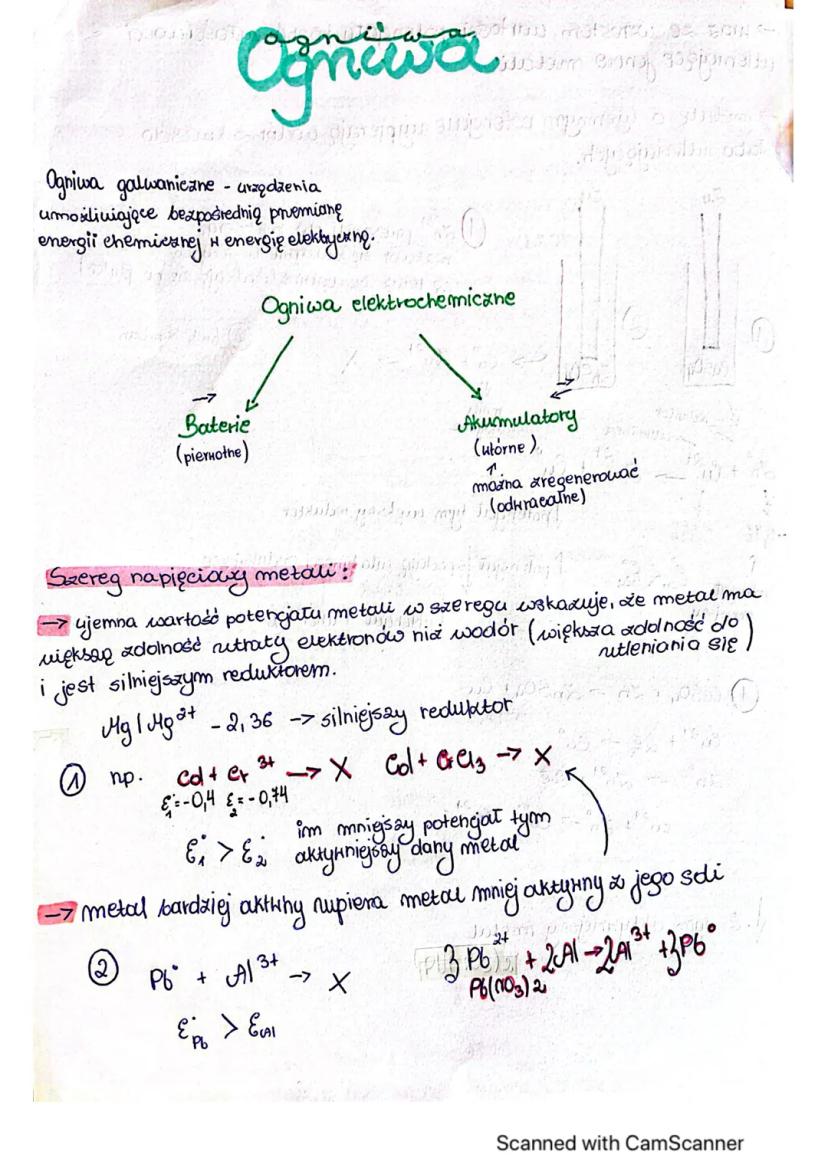 ogniwa
Ogniwa
Ogniwa galwaniczne - urządzenia
umożliwiające bezpośrednią przemianę
energii chemicznej w energię elektryczną.
Ogniwa elektrochemiczne
→ →
←
Baterie Akumulatory
(pierwotne) (wtórne)
↑
można zregenerować
(odwracalne)
Szereg napięciowy metali:
→ ujemna wartość potencjału metali w szeregu wskazuje, że metal ma
większą zdolność utraty elektronów niż wodór (większa zdolność do
utleniania się)
i jest silniejszym reduktorem.
Mg | Mg²⁺ - 2,36 → silniejszy reduktor
① np. Cd + Cr³⁺ → X Cd + CrCl₃ → X
ε₁°=-0,4 ε₂°=-0,74
ε₁° > ε₂° im mniejszy potencjał tym
aktywniejszy dany metal
→ metal bardziej aktywny wypiera metal mniej aktywny z jego soli
② Pb° + Al³⁺ → X 3Pb²⁺ + 2Al → 2Al³⁺ + 3Pb°
Pb(NO₃)₂
ε°Pb > εAl
Scanned with CamScanner